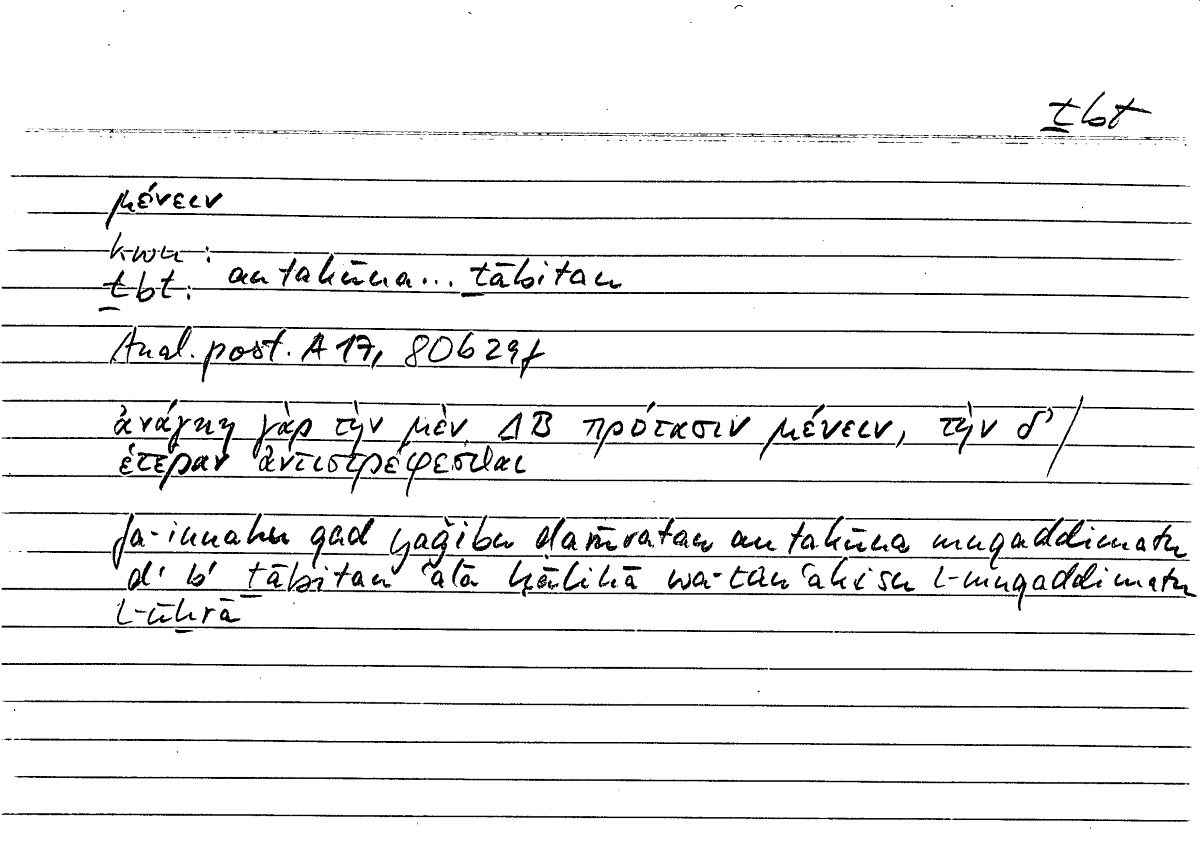 ṯbt
μένειν
kwn:
ṯbt: an takūna... ṯābitan
Anal. post. A 17, 80b29f
ἀνάγκη γὰρ τὴν μὲν ΔΒ πρότασιν μένειν, τὴν δ' /
ἑτέραν ἀντιστρέφεσθαι
fa-innahu qad yaǧibu ḍarūratan an takūna muqaddimatu
d' b' ṯābitan ʿalā ḥālihā wa-tanʿakisu l-muqaddimatu
l-uḫrā